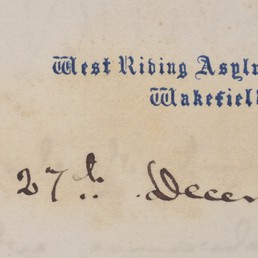 West Riding Asyl
Wakefiel
27th Decem